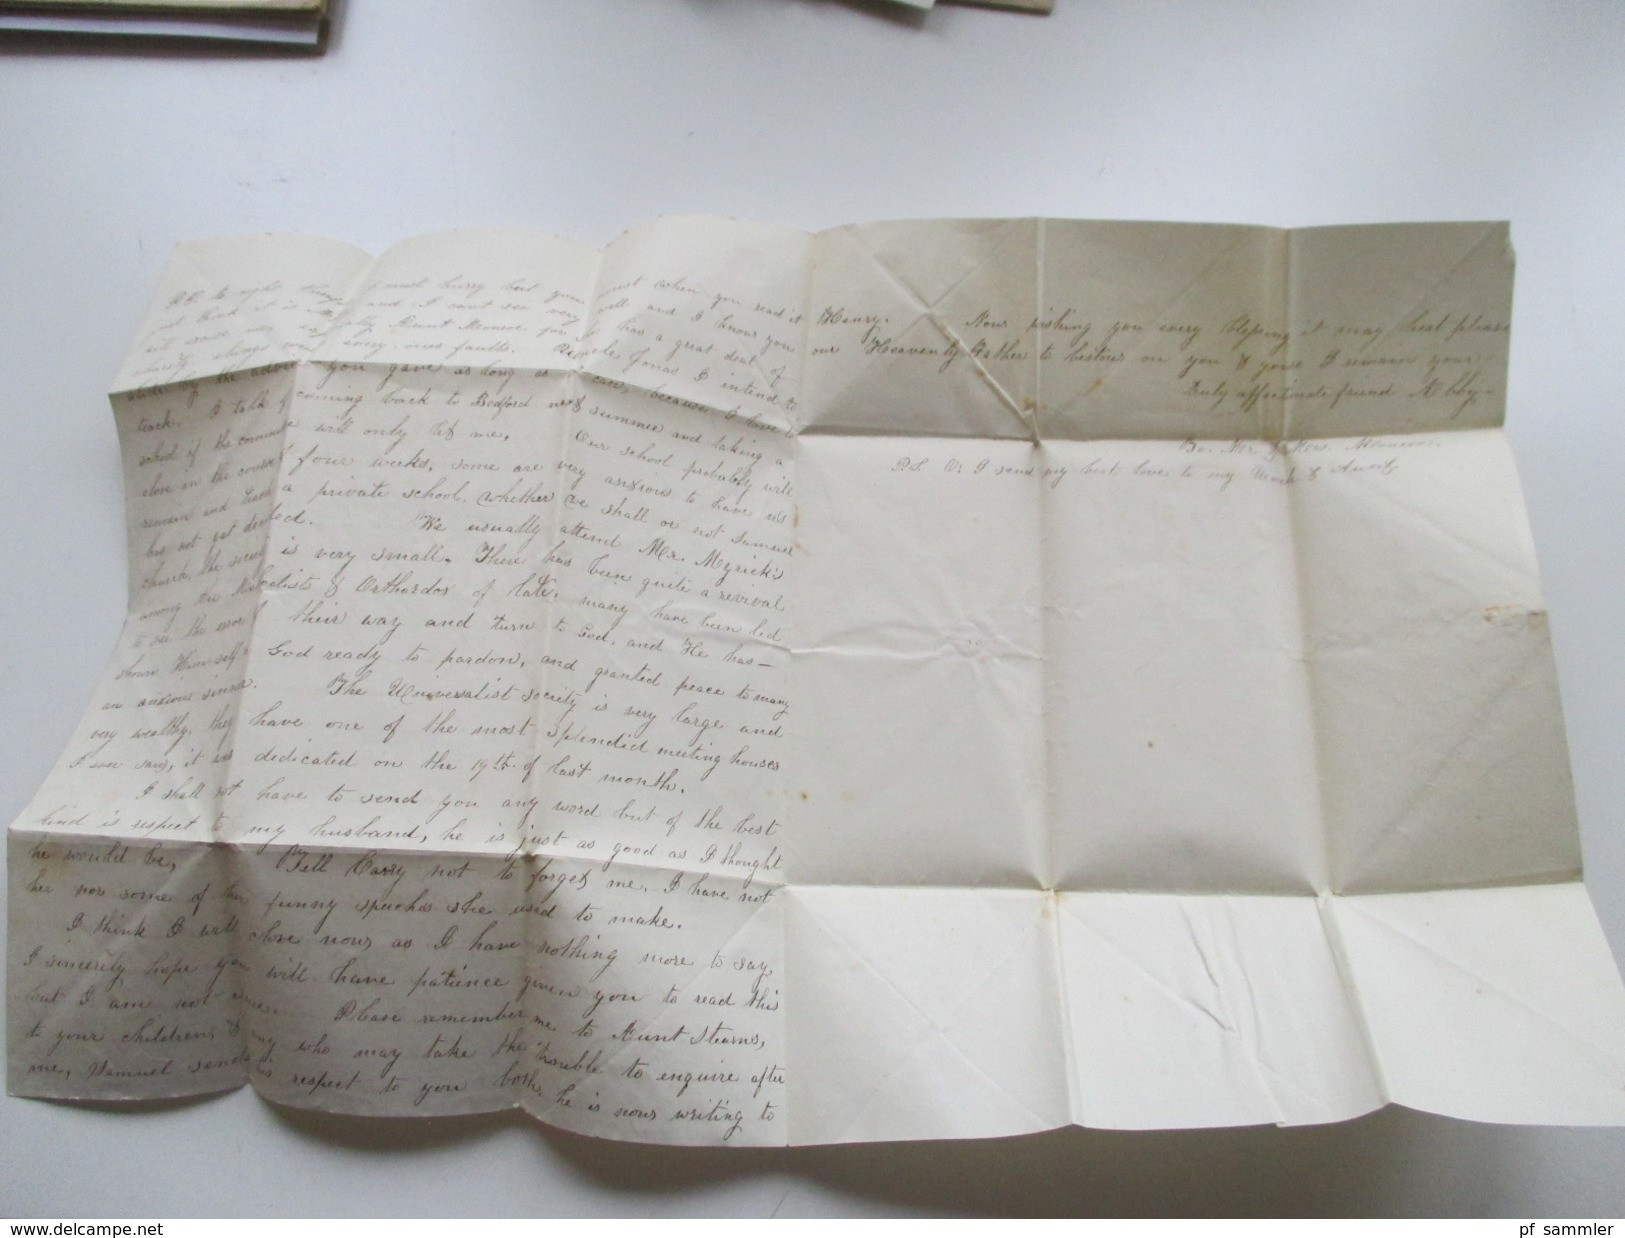 P.S. to night I must hurry but you must when you read it
just think it is and I cant see very well and I know you
will excuse my Aunt Monroe for she has a great deal of
charity always over every ones faults. Uncle Jonas I intend to
abide by the advice you gave as long as I can, because I love to
teach. I talk of coming back to Bedford next summer and taking a
school if the committee will only let me. Our school probably will
close in the course of four weeks, some are very anxious to have us
remain and teach a private school, whether we shall or not Samuel
has not yet decided. We usually attend Mr. Myrick's
church, the society is very small. There has been quite a revival
among the & Orthordox of late, many have been led
to see the error of their way and turn to God, and He has
shown Himself a God ready to pardon, and granted peace to many
an anxious sinner. The Universalist society is very large and
very wealthy, they have one of the most splendid meeting houses
I ever saw, it was dedicated on the 19th of last month.
I shall not have to send you any word but of the best
kind in respect to my husband, he is just as good as I thought
he would be. Tell Carry not to forget me. I have not
her nor some of the funny speeches she used to make.
I think I will close now as I have nothing more to say,
I sincerely hope you will have patience given you to read this
but I am not Please remember me to Aunt Stearns,
to your children, & any who may take the trouble to enquire after
me, Samuel sends his respect to you both, he is now writing to
Henry. Now wishing you every blessing it may best please
our Heavenly Father to bestow on you & yours I remain your
truly affectionate friend Abby
To. Mr. & Mrs. Monroe.
P.S. Or I send my best love to my Uncle & Aunt
www.delcampe.net
pf_sammler